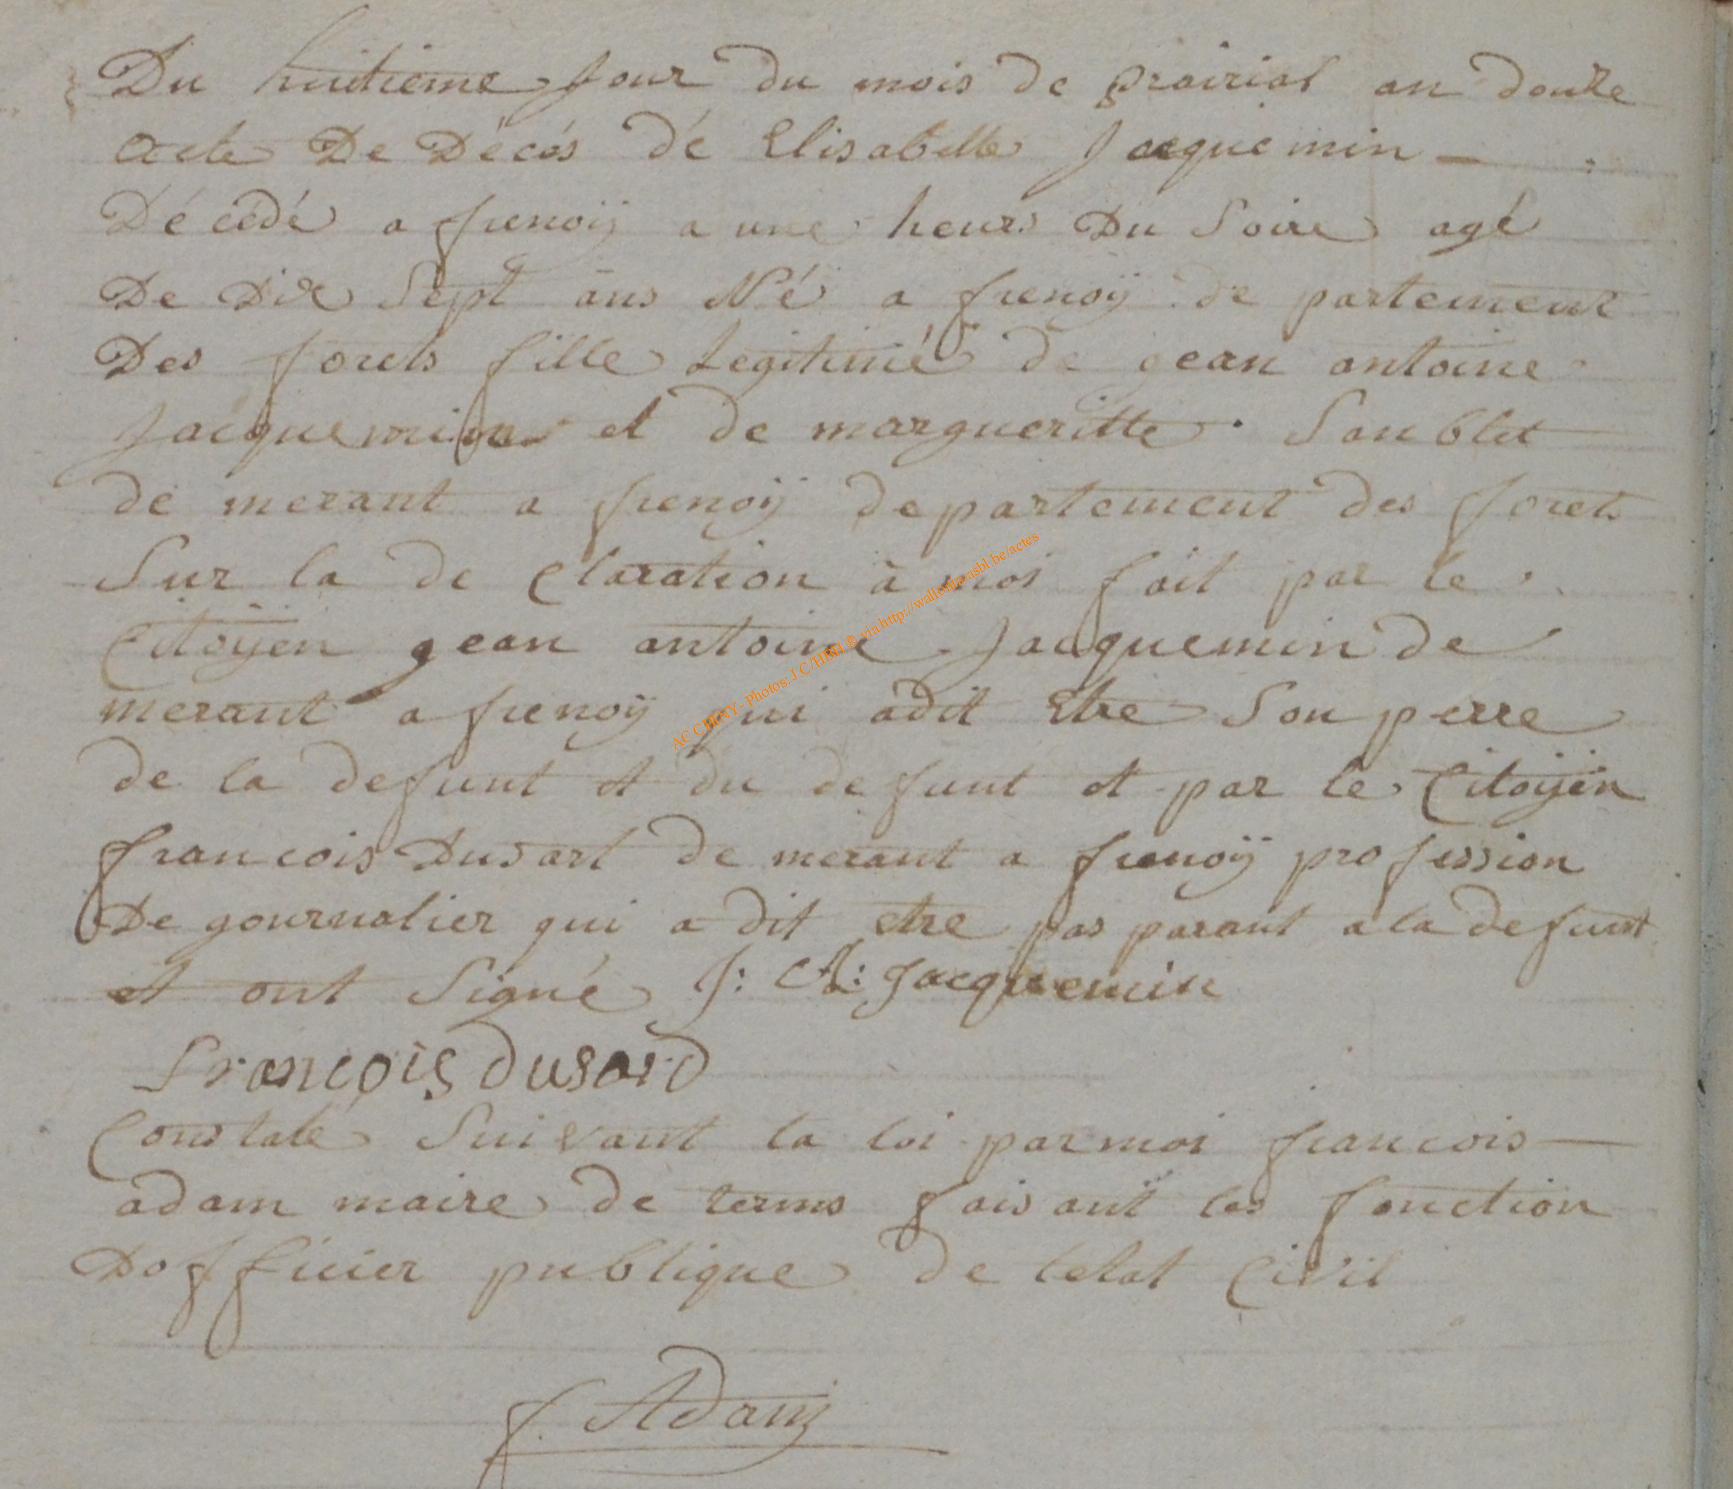 Du huitieme Jour du mois de prairial an douze
acte De Décés dé Elisabette Jacquemin
Décédé a frenoÿ a une heurs Du Soire agé
De Dix Sept ans Né a frenoÿ de partement
Des forets fille Legitimé de gean antoine
Jacquemin et de margueritte Soublet
de merant a frenoÿ departement des forets
Sur la de claration à moi fait par le
Citoÿen gean antoine Jacquemin de
merant a frenoÿ qui adit Etre Son perre
de la defunt et du de funt et par le Citoÿen
francois Dusart de merant a frenoÿ profession
De gournalier qui a dit etre pas parant a la defunt
et ont Signé J: A: Jacquemin
François dusard
Constaté Suivant la loi par moi francois
adam maire de termes faisant les fonction
Dofficier publique de letat Civil
f. Adam
AC CHINY - Photos: J.C/HBH © via http://wallonia-asbl.be/actes